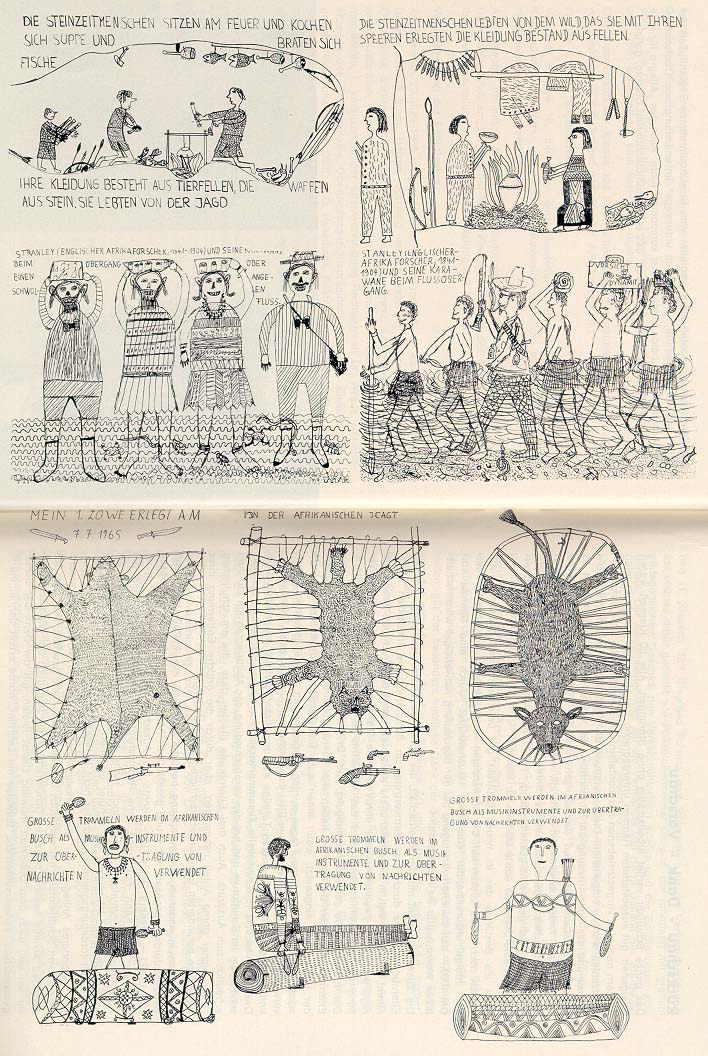 DIE STEINZEITMENSCHEN SITZEN AM FEUER UND KOCHEN
SICH SUPPE UND BRATEN SICH
FISCHE
IHRE KLEIDUNG BESTEHT AUS TIERFELLEN, DIE WAFFEN
AUS STEIN, SIE LEBTEN VON DER JAGD
DIE STEINZEITMENSCHEN LEBTEN VON DEM WILD DAS SIE MIT IHREN
SPEEREN ERLEGTEN DIE KLEIDUNG BESTAND AUS FELLEN.
STRANLEY (ENGLISCHER AFRIKAFORSCHER, 1841-1904) UND SEINE
BEIM ÜBERGANG ÜBER
EINEN ANGE-
SCHWOL- LEN
FLUSS.
STANLEY (ENGLISCHER-
AFRIKAFORSCHER, 1841-
1904) UND SEINE KARA-
WANE BEIM FLUSSÜBER
GANG.
VORSICH
DYNAMIT
MEIN 1. LÖWE ERLEGT AM IN DER AFRIKANISCHEN
7.7 1965
GROSSE TROMMELN WERDEN IM AFRIKANISCHEN
BUSCH ALS MUSIK-INSTRUMENTE UND
ZUR ÜBER-TRAGUNG VON
NACHRICHTEN VERWENDET
GROSSE TROMMELN WERDEN IM
AFRIKANISCHEN BUSCH ALS MUSIK
INSTRUMENTE UND ZUR ÜBER-
TRAGUNG VON NACHRICHTEN
VERWENDET.
GROSSE TROMMELN WERDEN IM AFRIANISCHEN
BUSCH ALS MUSIKINSTRUMENTE UND ZUR ÜBERTRA-
GUNG VON NACHRICHTEN VERWENDET